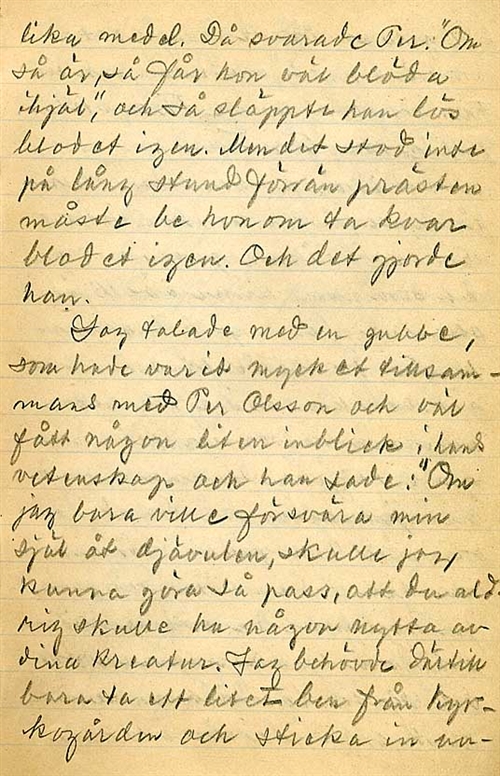 lika medel. Då svarade Per: "Om
så är, så får hon väl blöda
ihjäl", och så släppte han lös
blodet igen. Men det stod inte
på lång stund förrän prästen
måste be honom ta kvar
blodet igen. Och det gjorde
han.
Jag talade med en gubbe,
som hade varit mycket tillsam-
mans med Per Olsson och väl
fått någon liten inblick i hans
vetenskap och han sade: "Om
jag bara ville försvära min
själ åt djävulen, skulle jag
kunna göra så pass, att du ald-
rig skulle ha någon nytta av
dina kreatur. Jag behövde därtill
bara ta ett litet ben från kyr-
kogården och sticka in un-